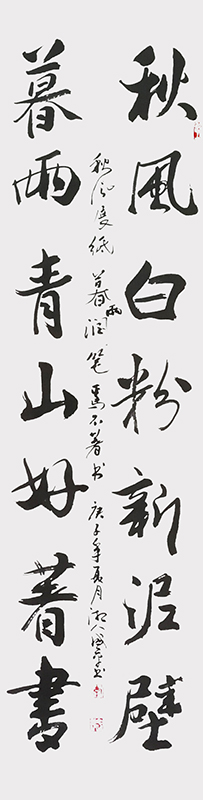 秋風白粉新泥壁
秋风度紙 暮雨润笔 焉不著书 庚子年夏月湘人
暮雨青山好著書